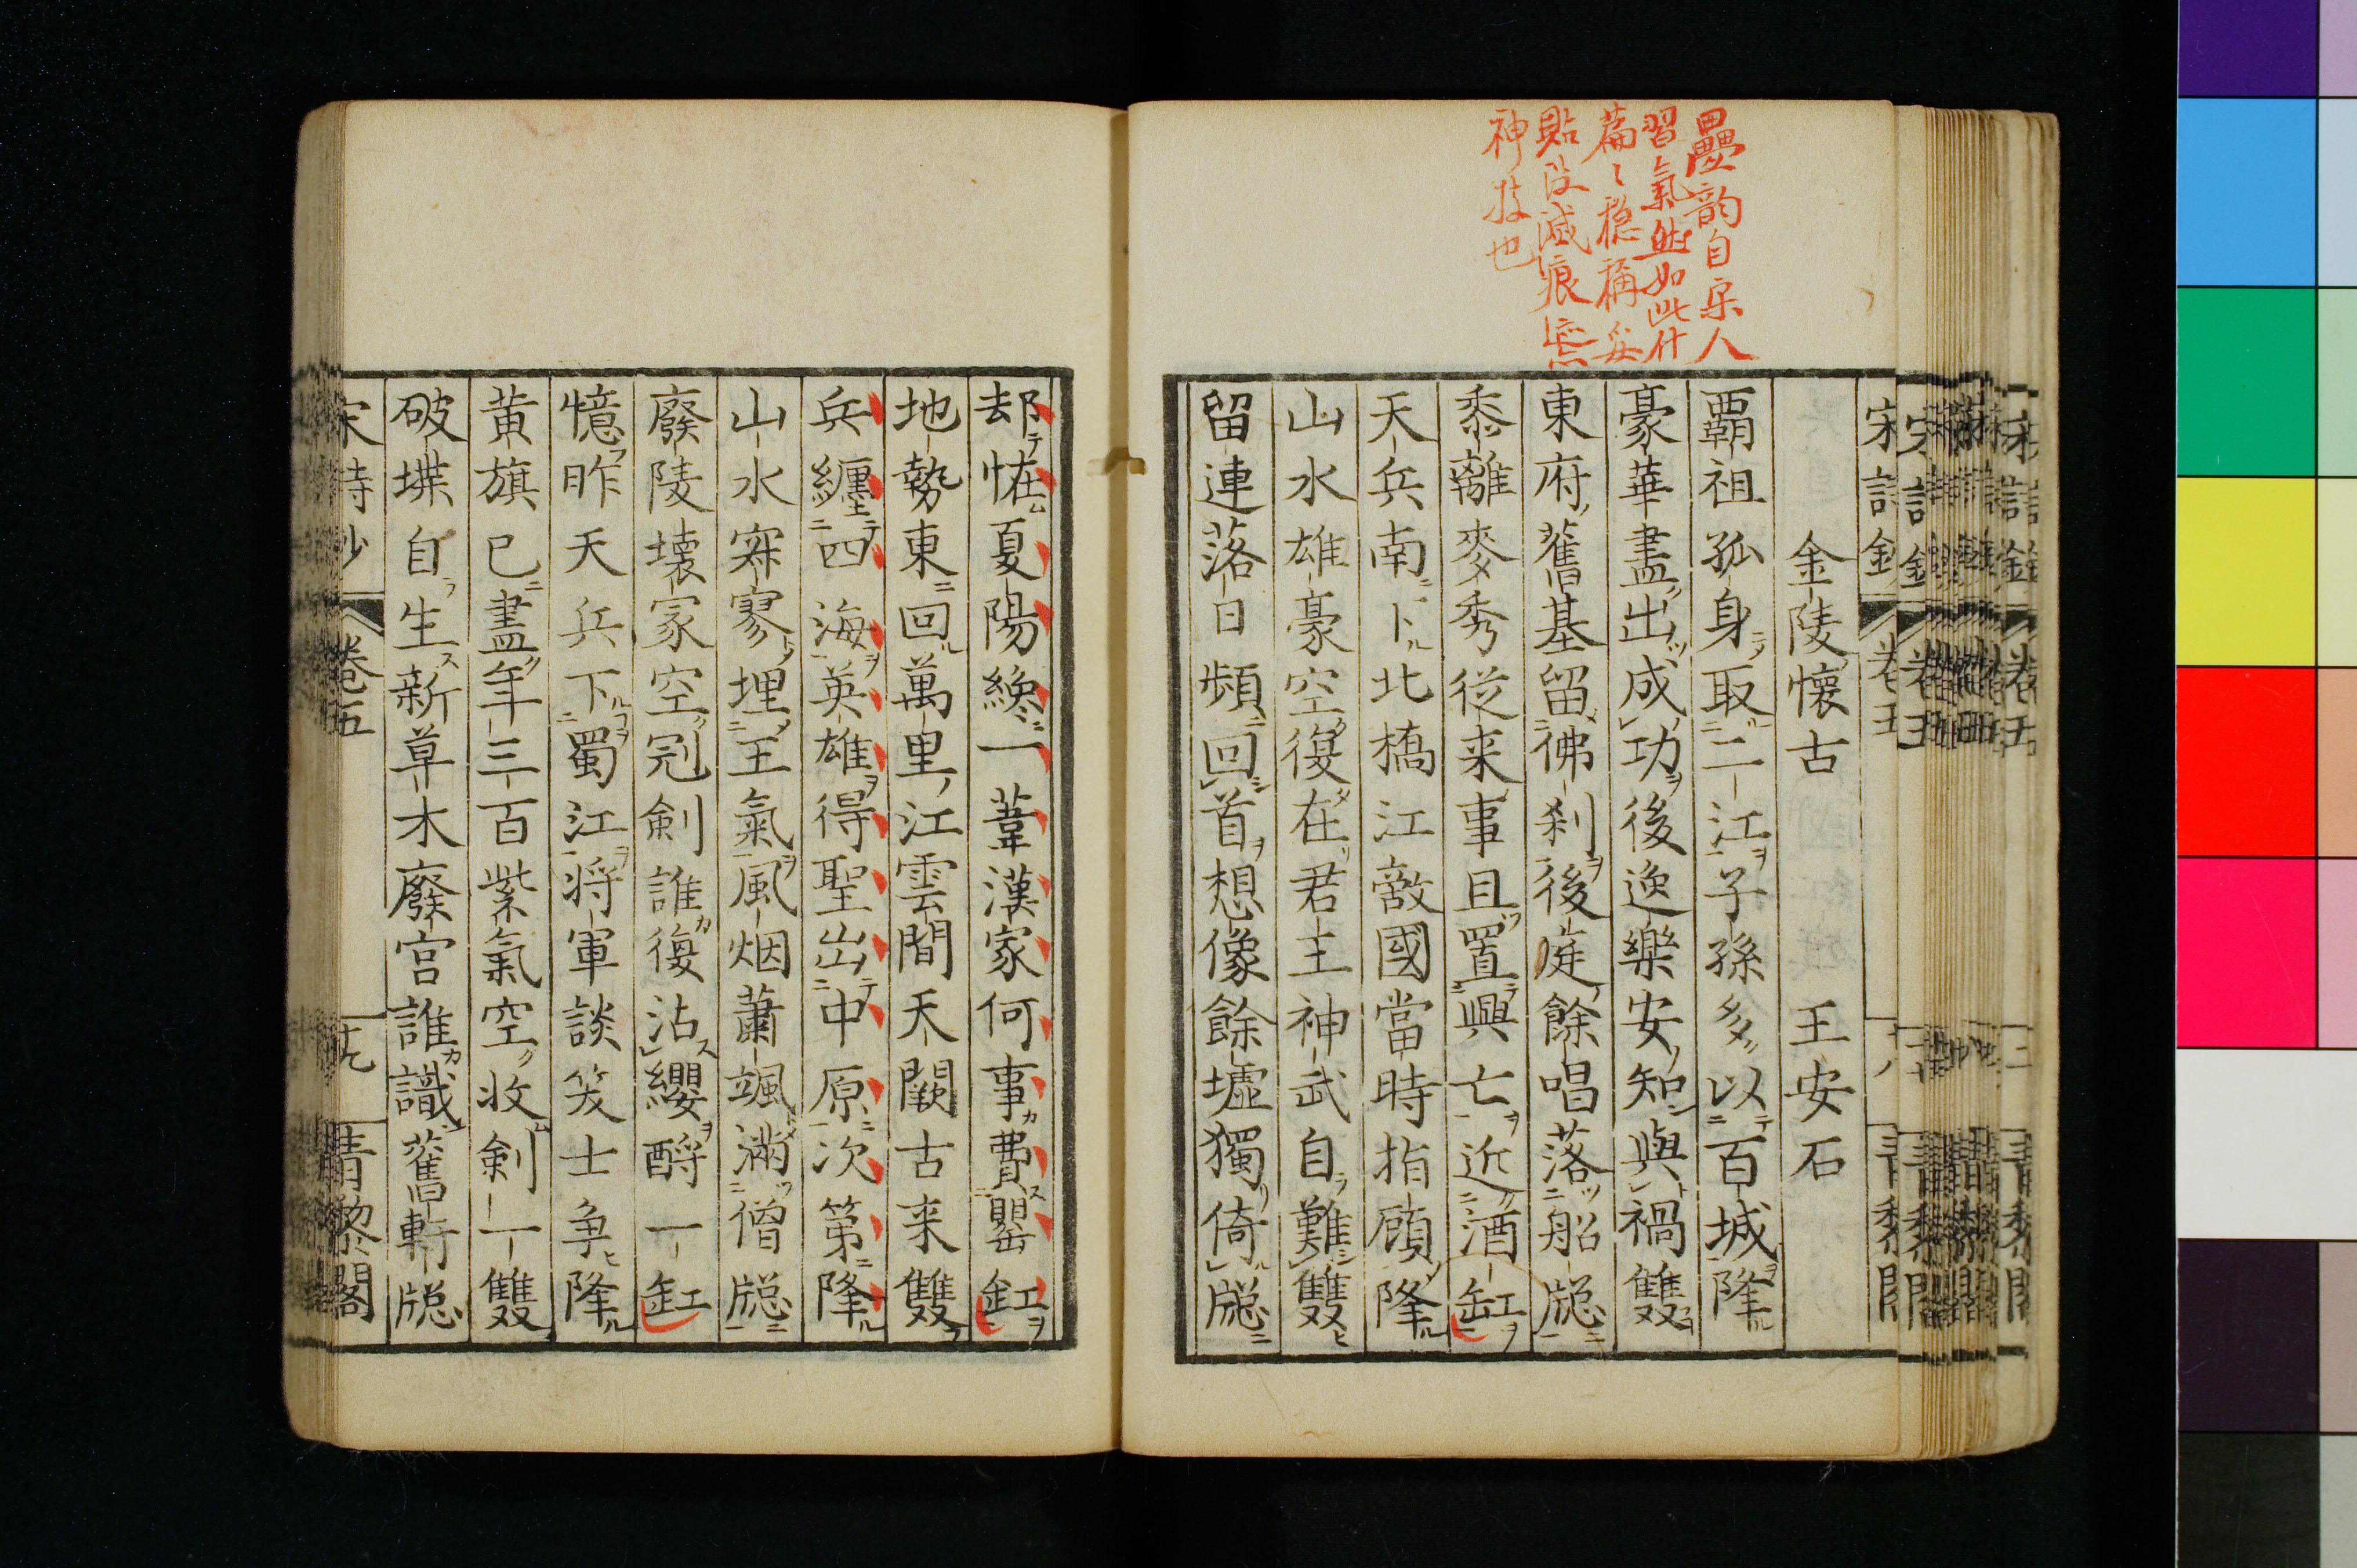 疊韵自宋人
習氣然如此什
篇〻穏稱妥
貼没滅痕
神技也
金陵懷古
王安石
覇祖孤身取二江子孫多以百城降
豪華盡出成功後逸樂安知與禍雙
東府舊基留佛刹後庭餘唱落船牕
黍離麥秀從来事且置興亡近酒缸
天兵南下北橋江敵國當時指顧降
山水雄豪空復在君王神武自難雙
留連落日頻回首想像餘墟獨倚牕
却恠夏陽纔一葦漢家何事費罌缸
地勢東回萬里江雲間天闕古来雙
兵纏四海英雄得聖出中原次第降
山水寂寥埋王氣風烟蕭颯滿僧牕
廢陵壊冢空冠劍誰復沾纓酹一缸
憶昨天兵下蜀江将軍談笑士争降
黄旗已盡年三百紫氣空收劍一雙
破堞自生新草木廢宫誰識舊軒牕
宋詩鈔
卷五
十九
青黎閣